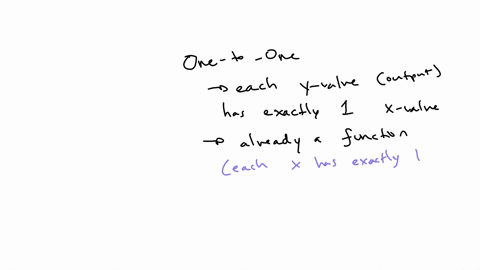 One-to-One
→ each y-value (output)
has exactly 1 x-value
→ already a function
(each x has exactly 1